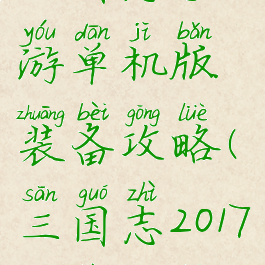 yóu dān jī bǎn
游单机版
zhuāng bèi gōng lüè
装备攻略(
sān guó zhì
三国志2017